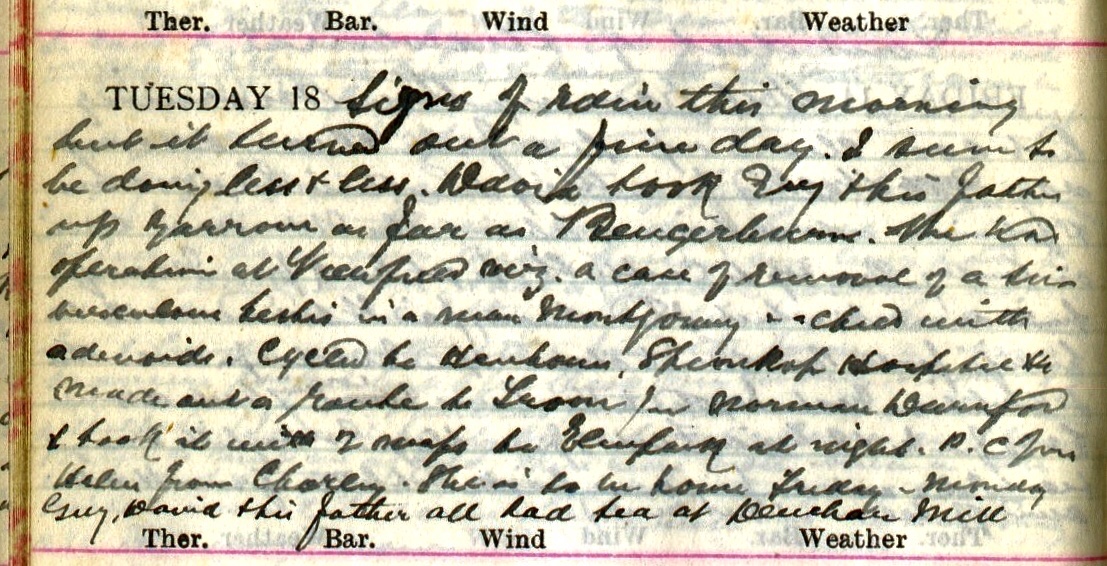 Ther. Bar. Wind Weather
TUESDAY 18 Signs of rain this morning
but it turned out a fine day. I seem to
be doing less & less. David took Guy & his father
up Yarrow as far as The
operation at viz. a case of removal of a
testis in a man Montgomery & a child with
adenoids. Cycled to Hospital &c
made out a route to Troon for Norman Durnford
& took it with 2 maps to at night. P.C. from
Helen from Chorley. She is to be home Friday - Monday
Guy, David & his father all had tea at Mill
Ther. Bar. Wind Weather